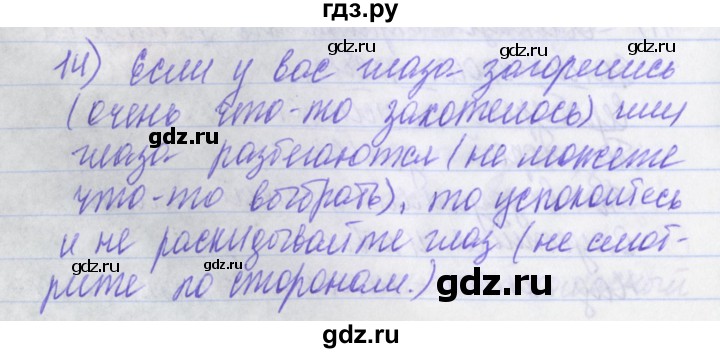 гдз.ру
gdz.ru gdz.ru
14) Если у вас глаза загорелись
(очень что-то захотелось) или
gdz.ru gdz.ru
глаза разбегаются (не можете
что-то выбрать), то успокойтесь
gdz.ru gdz.ru
и не раскидывайте глаз (не смот-
gdz.ru gdz.ru
рите по сторонам.)
gdz.ru
gdz.ru